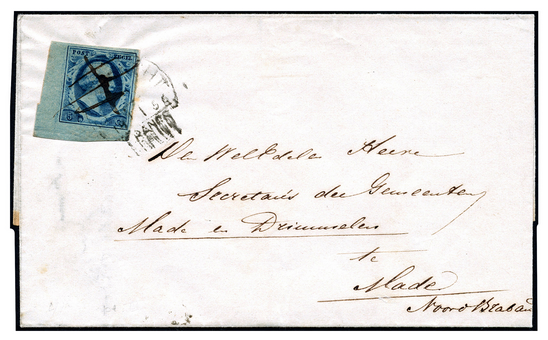 POST ZEGEL
FRANCO
Den WelEdelen Heere
Secretaris der Gemeenten
Made en Drimmelen
te
Made
Noord Braban